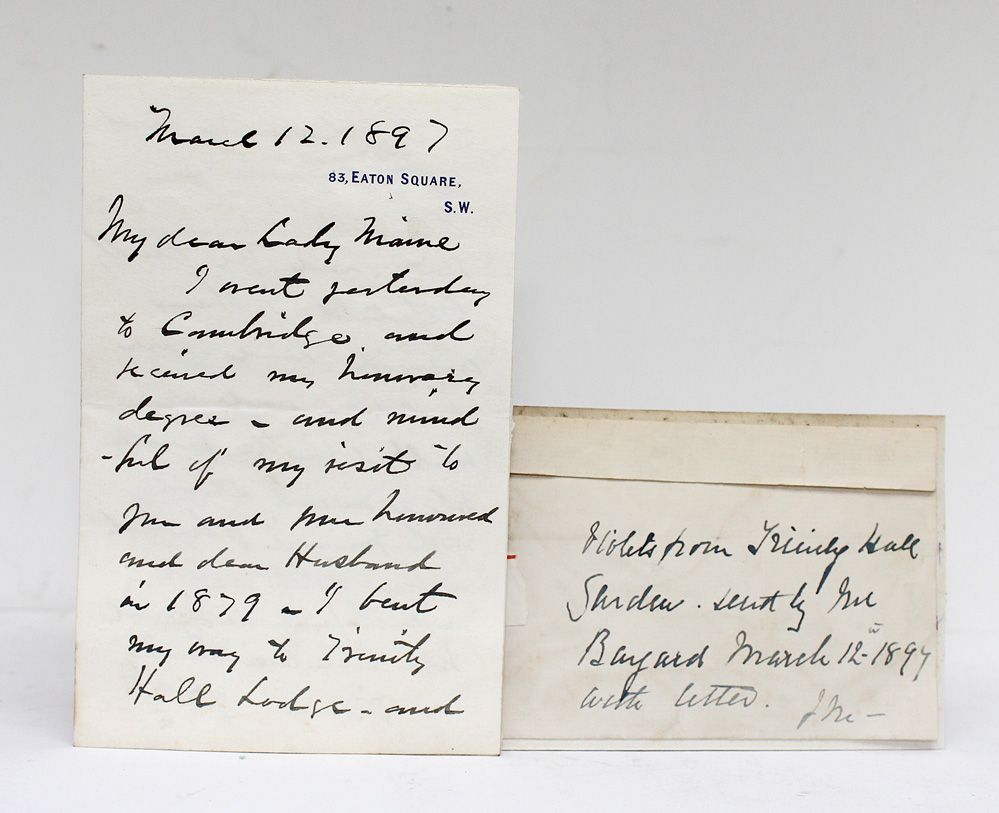 March 12. 1897
83, EATON SQUARE,
S.W.
My dear Lady Maine
I went yesterday
to Cambridge and
received my honorary
degree - and mind
-ful of my visit to
you and your honoured
and dear Husband
in 1879 - I bent
my way to Trinity
Hall Lodge - and
Violets from Trinity Hall
Garden. sent by Mr
Bayard March 12th 1897
with letter.